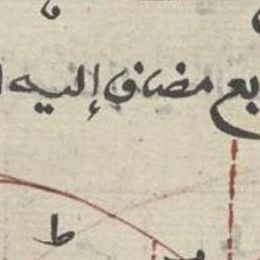 بع مضاف إليه
ط